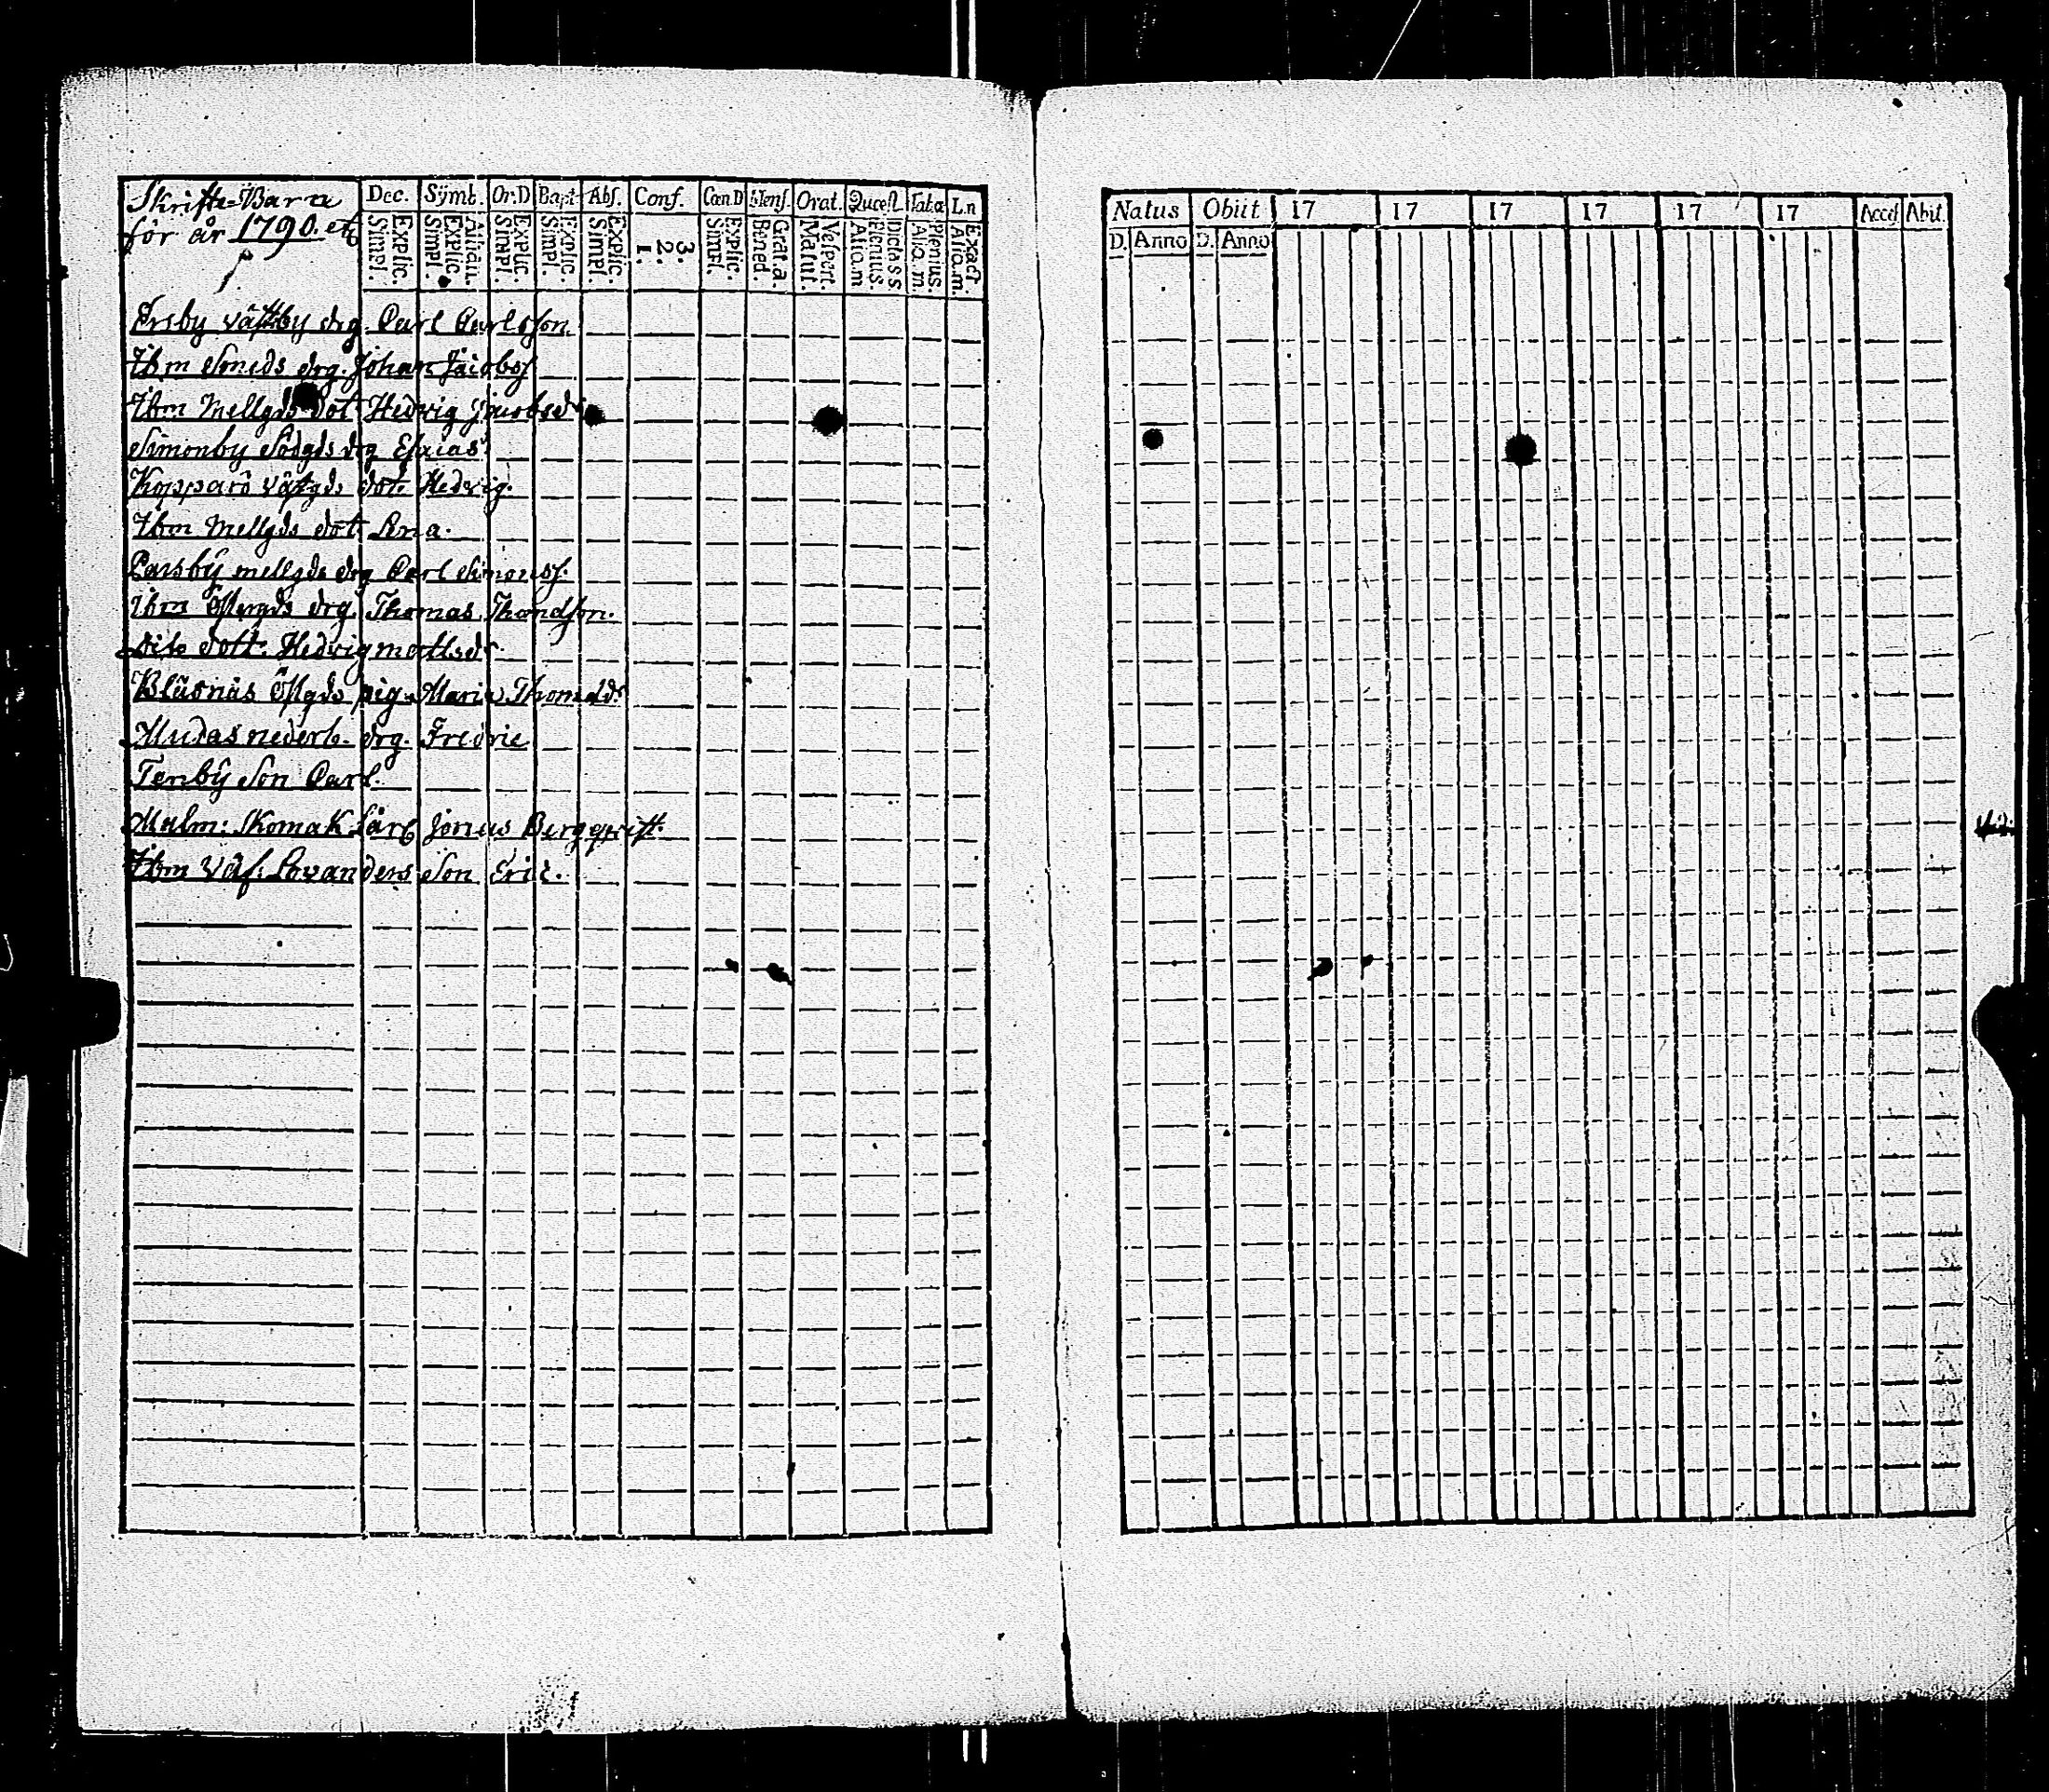 Skrifte-Barn
för år 1790. etc
Dec. Symb. Or.D Bapt Abs. Conf. Cœn.D Mens. Orat. Quœst. Tab.a L.n
Explic. Simpl. Athan. Explic. Simpl. Explic. Simpl. Explic. Simpl. Explic. Simpl. 3. 2. 1. Explic. Simpl. Grat.a. Bened. Vespert. Matut. Dictass Plenius. Alio.m Plenius. Alio.m. Exact. Alio.m.
Ersby Västby drg. Carl Carlsson.
Ibm Smeds drg. Johan Jacobs.
Ibm Mellgds dot. Hedvig Jacobsdr
Simonby Södgds drg Esaias
Kopparö Västgds dot. Hedvig.
Ibm Mellgds dot. Lena.
Parsby mellgds drg Carl Simonss.
Ibm Östergds drg. Thomas Thomasson.
dito dott. Hedvig mattsdr
Bläsnäs Östgds pig. Maria Thomasdr
Mudas nederb. drg. Fredric
Tenby Son Carl.
Malm: Skomak. lärl Jonas Bergqvist.
Ibm Väf: Lovanders Son Eric.
Natus Obiit 17 17 17 17 17 17 Access Abit.
D. Anno D. Anno